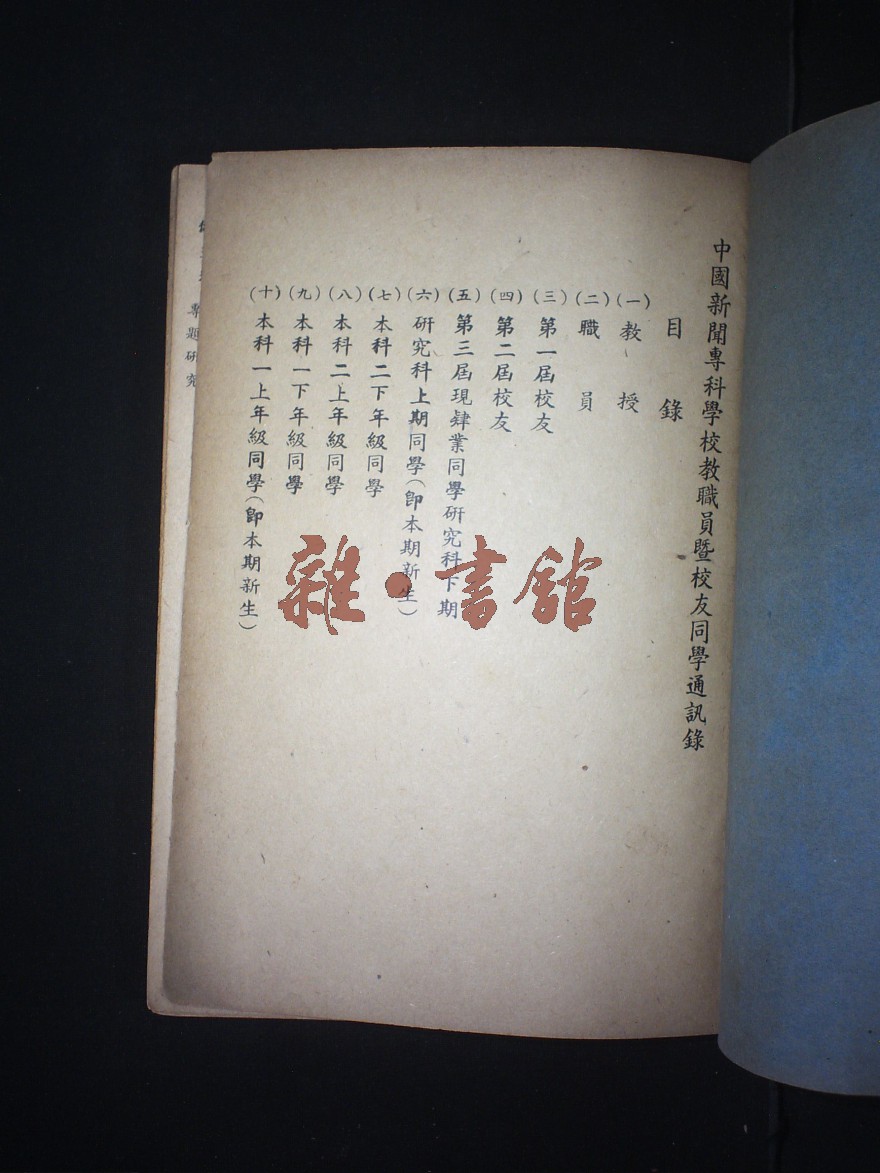 中國新聞專科學校教職員暨校友同學通訊錄
目錄
(一)教授
(二)職員
(三)第一屆校友
(四)第二屆校友
(五)第三屆現肄業同學研究科下期
(六)研究科上期同學(即本期新生)
(七)本科二下年級同學
(八)本科二上年級同學
(九)本科一下年級同學
(十)本科一上年級同學(即本期新生)
專題研究
雜·書館